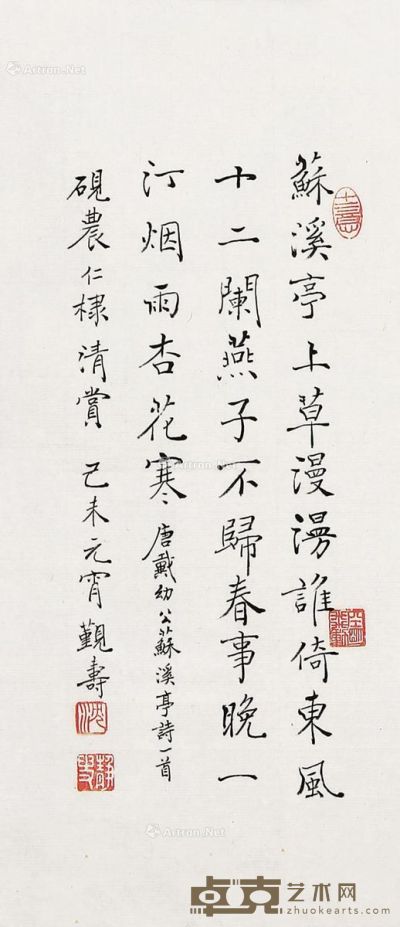 蘇溪亭上草漫漫誰倚東風
十二闌燕子不歸春事晚一
汀烟雨杏花寒
唐戴幼公蘇溪亭詩一首
硯農仁棣清賞 己未元宵觀壽
Artron.Net
Artron.Net
Artron.Net
Artron.Net
卓克艺术网
zhuokearts.com